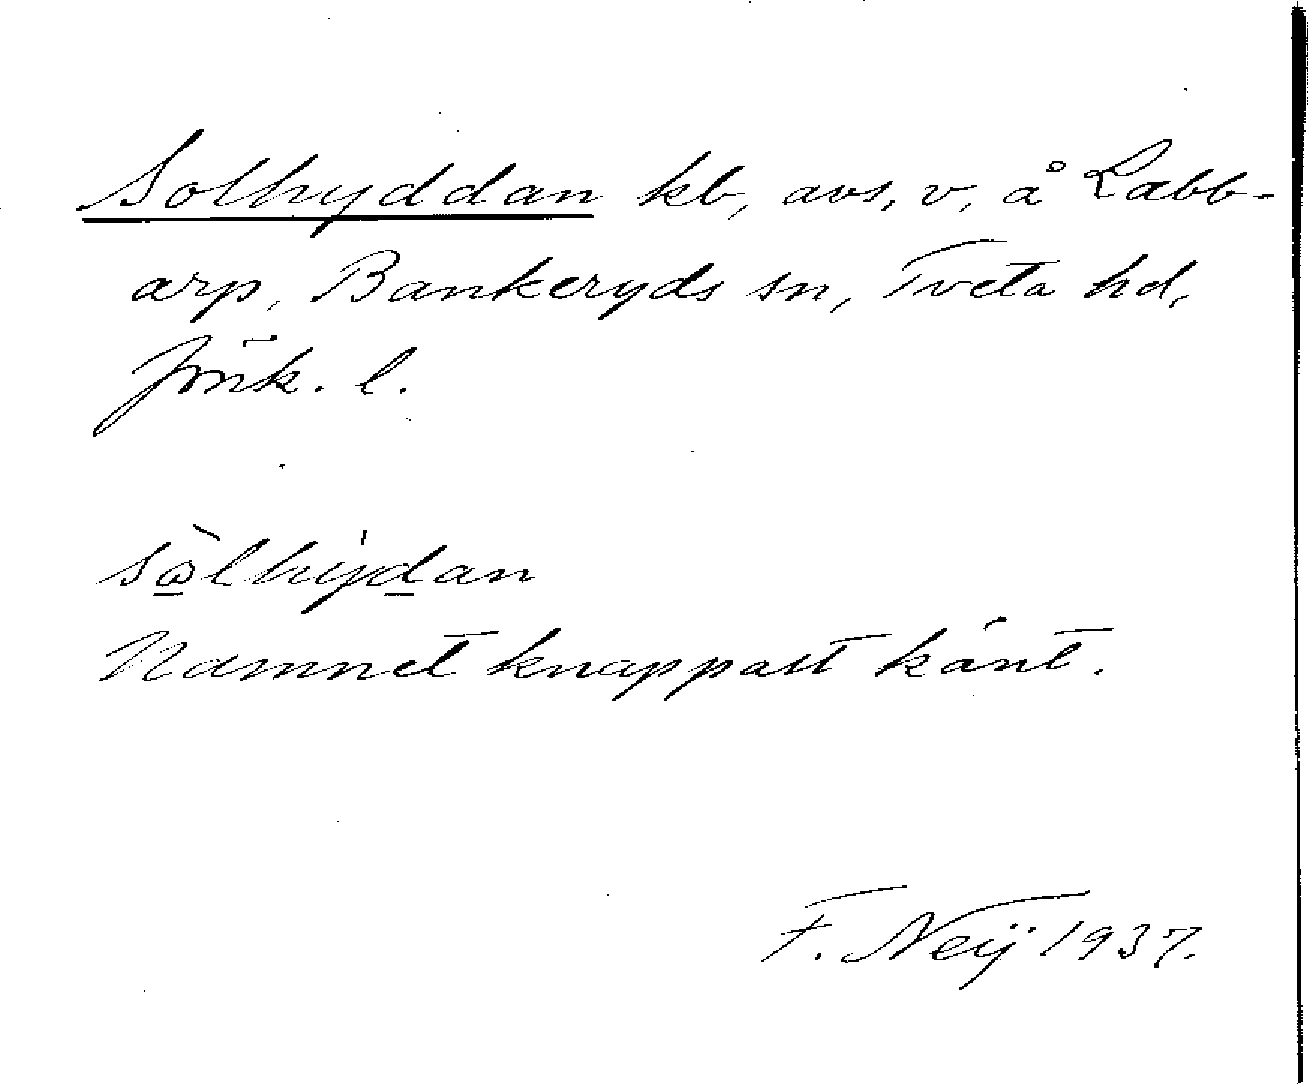 Solhyddan kb, avs, v, å Labb-
arp, Bankeryds sn, Tveta hd,
Jönk. l.
sὼlhýdan
Namnet knappast känt.
F. Neij 1937.